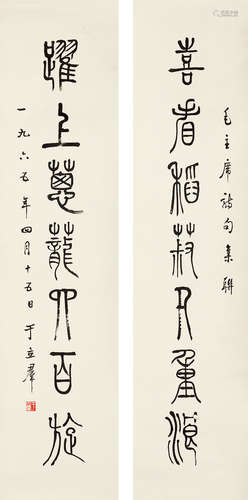 毛主席詩句集聯
喜看稻菽千重浪
躍上蔥蘢四百旋
一九六五年四月十五日于立群